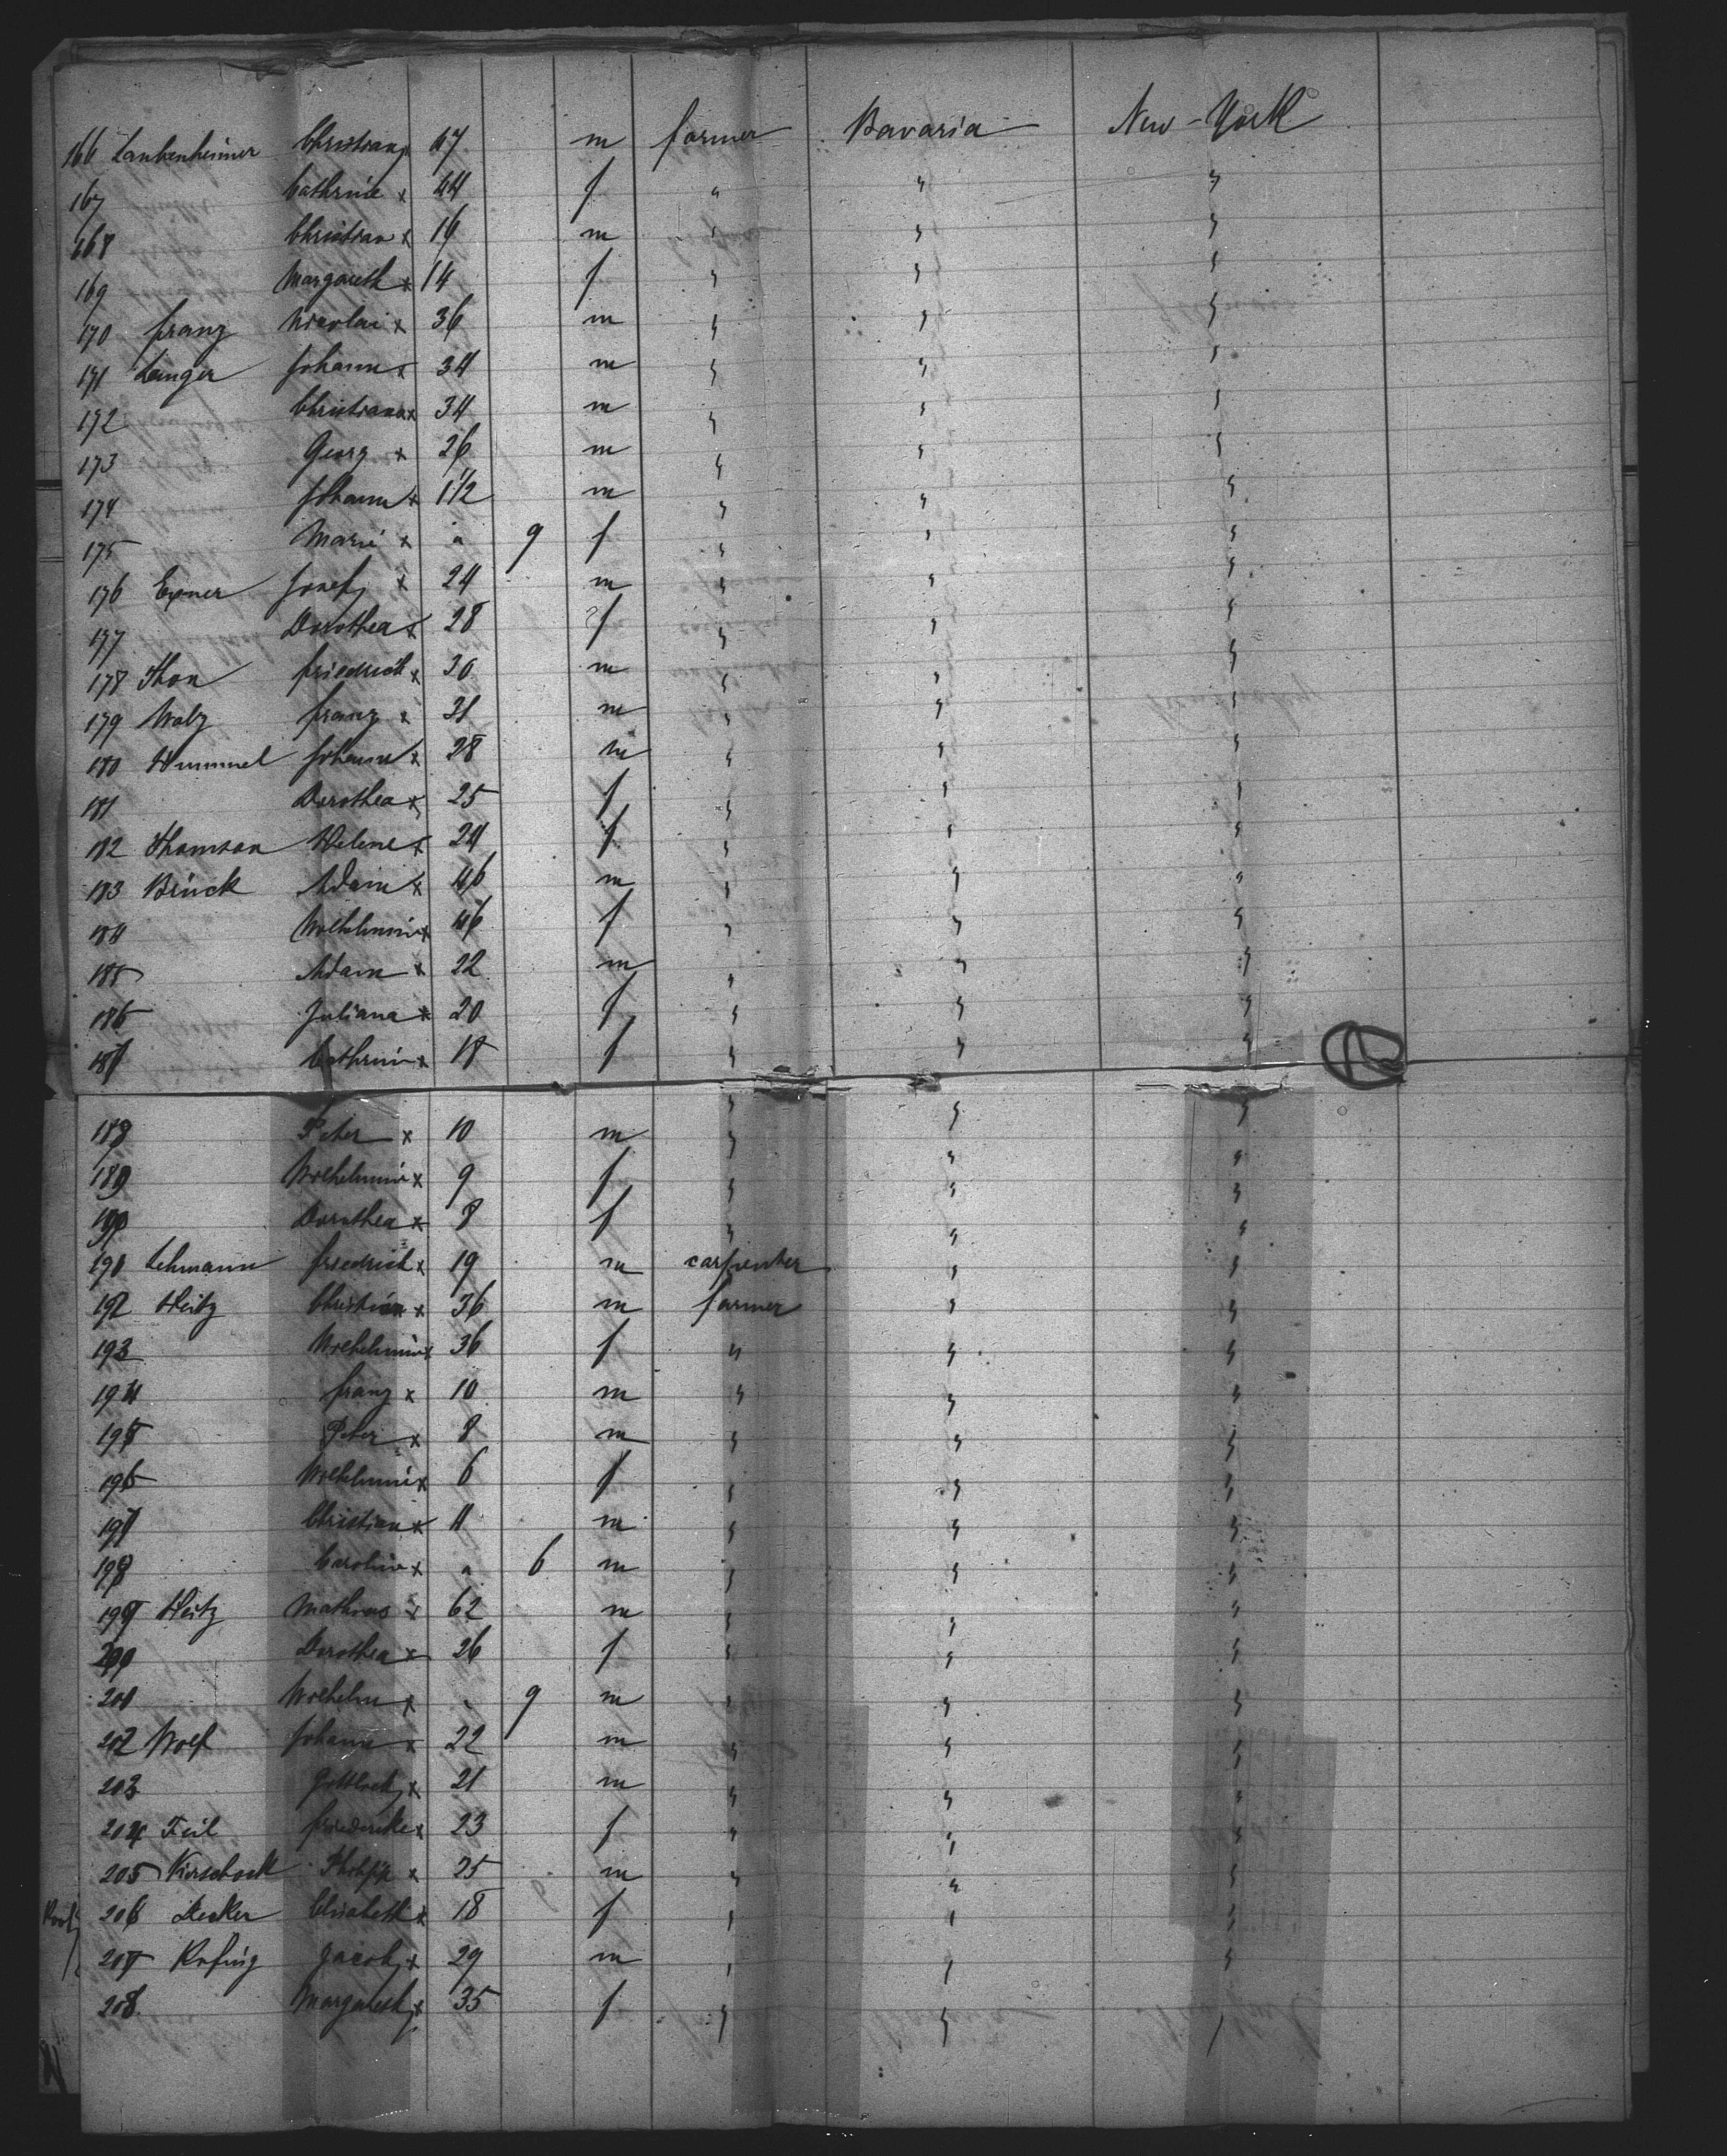 166 Laubenheimer Christian x 47 m farmer Bavaria New-York
167 Cathrine x 44 f " " "
168 Christian x 16 m " " "
169 Margareth x 14 f " " "
170 Franz Nicolai x 36 m " " "
171 Langer Johann x 34 m " " "
172 Christiana x 34 m " " "
173 Georg x 26 m " " "
174 Johann x 1 1/2 m " " "
175 Marie x " 9 f " " "
176 Exner Josef x 24 m " " "
177 Dorothea x 28 f " " "
178 Thon Friedrich x 30 m " " "
179 Walz Franz x 31 m " " "
180 Hummel Johann x 28 m " " "
181 Dorothea x 25 f " " "
182 Thomson Helene x 24 f " " "
183 Brück Adam x 46 m " " "
184 Wilhelmine x 46 f " " "
185 Adam x 22 m " " "
186 Juliana x 20 f " " "
187 Cathrin x 18 f " " "
188 Peter x 10 m " " "
189 Wilhelmine x 9 f " " "
190 Dorothea x 8 f " " "
191 Lehmann Friedrich x 19 m carpenter " "
192 Heitz Christian x 36 m farmer " "
193 Wilhelmine x 36 f " " "
194 Franz x 10 m " " "
195 Peter x 8 m " " "
196 Wilhelmine x 6 f " " "
197 Christian x 4 m " " "
198 Caroline x " 6 m " " "
199 Heitz Mathias x 62 m " " "
200 Dorothea x 26 f " " "
201 Wilhelm x " 9 m " " "
202 Wolf Johann x 22 m " " "
203 Gottlieb x 21 m " " "
204 Feil Friederike x 23 f " " "
205 Kirschock Philipp x 25 m " " "
206 Decker Elisabeth x 18 f " " "
207 Jacob x 29 m " " "
208 Margareth x 35 f " " "